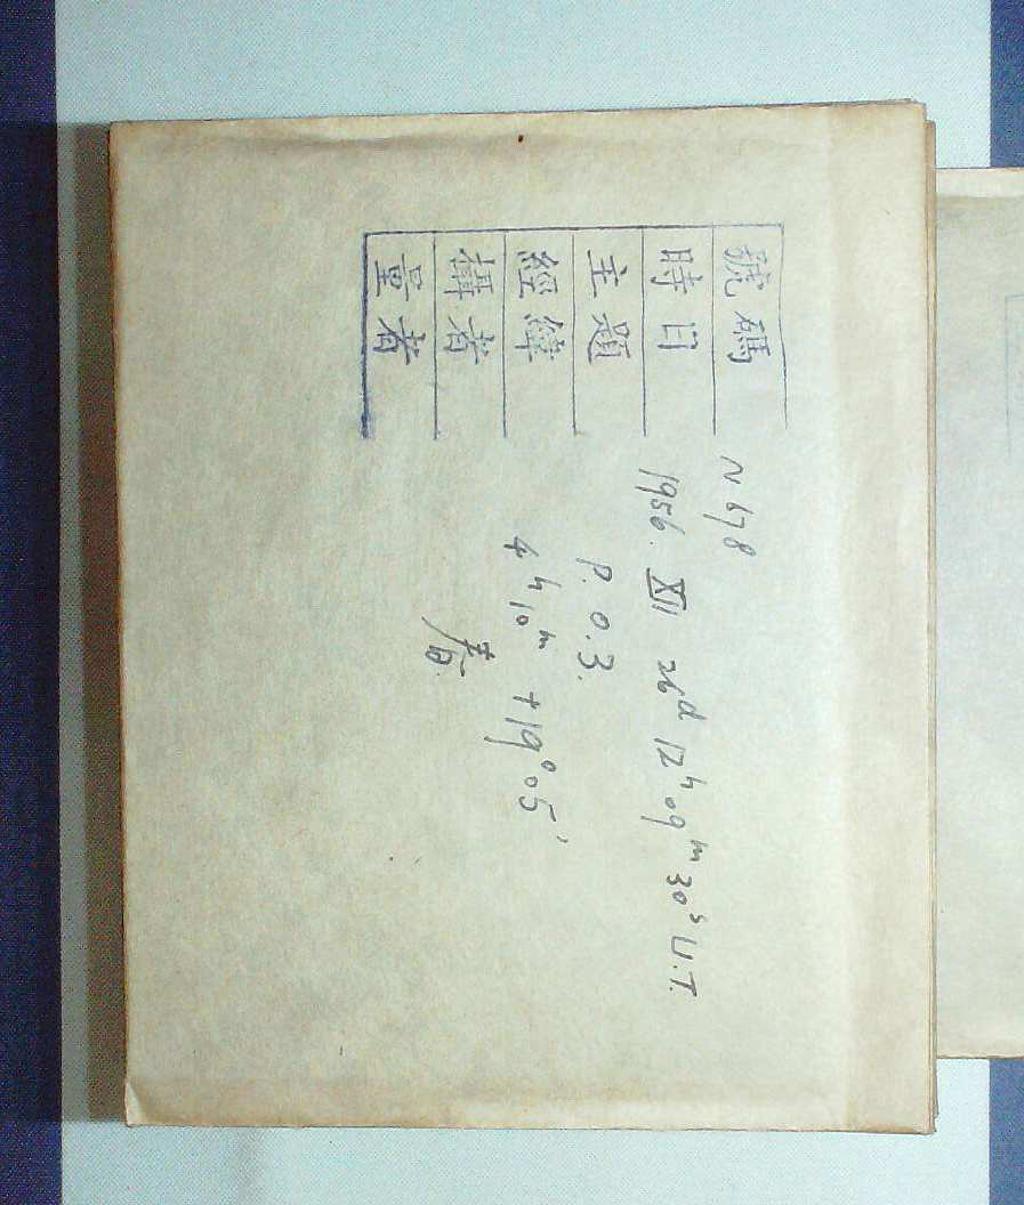 號碼 N 678
時日 1956. XII 26d 12h 09m 30s U.T.
主題 P. O. 3.
經緯 4h 10m +19° 05'
攝者
量者